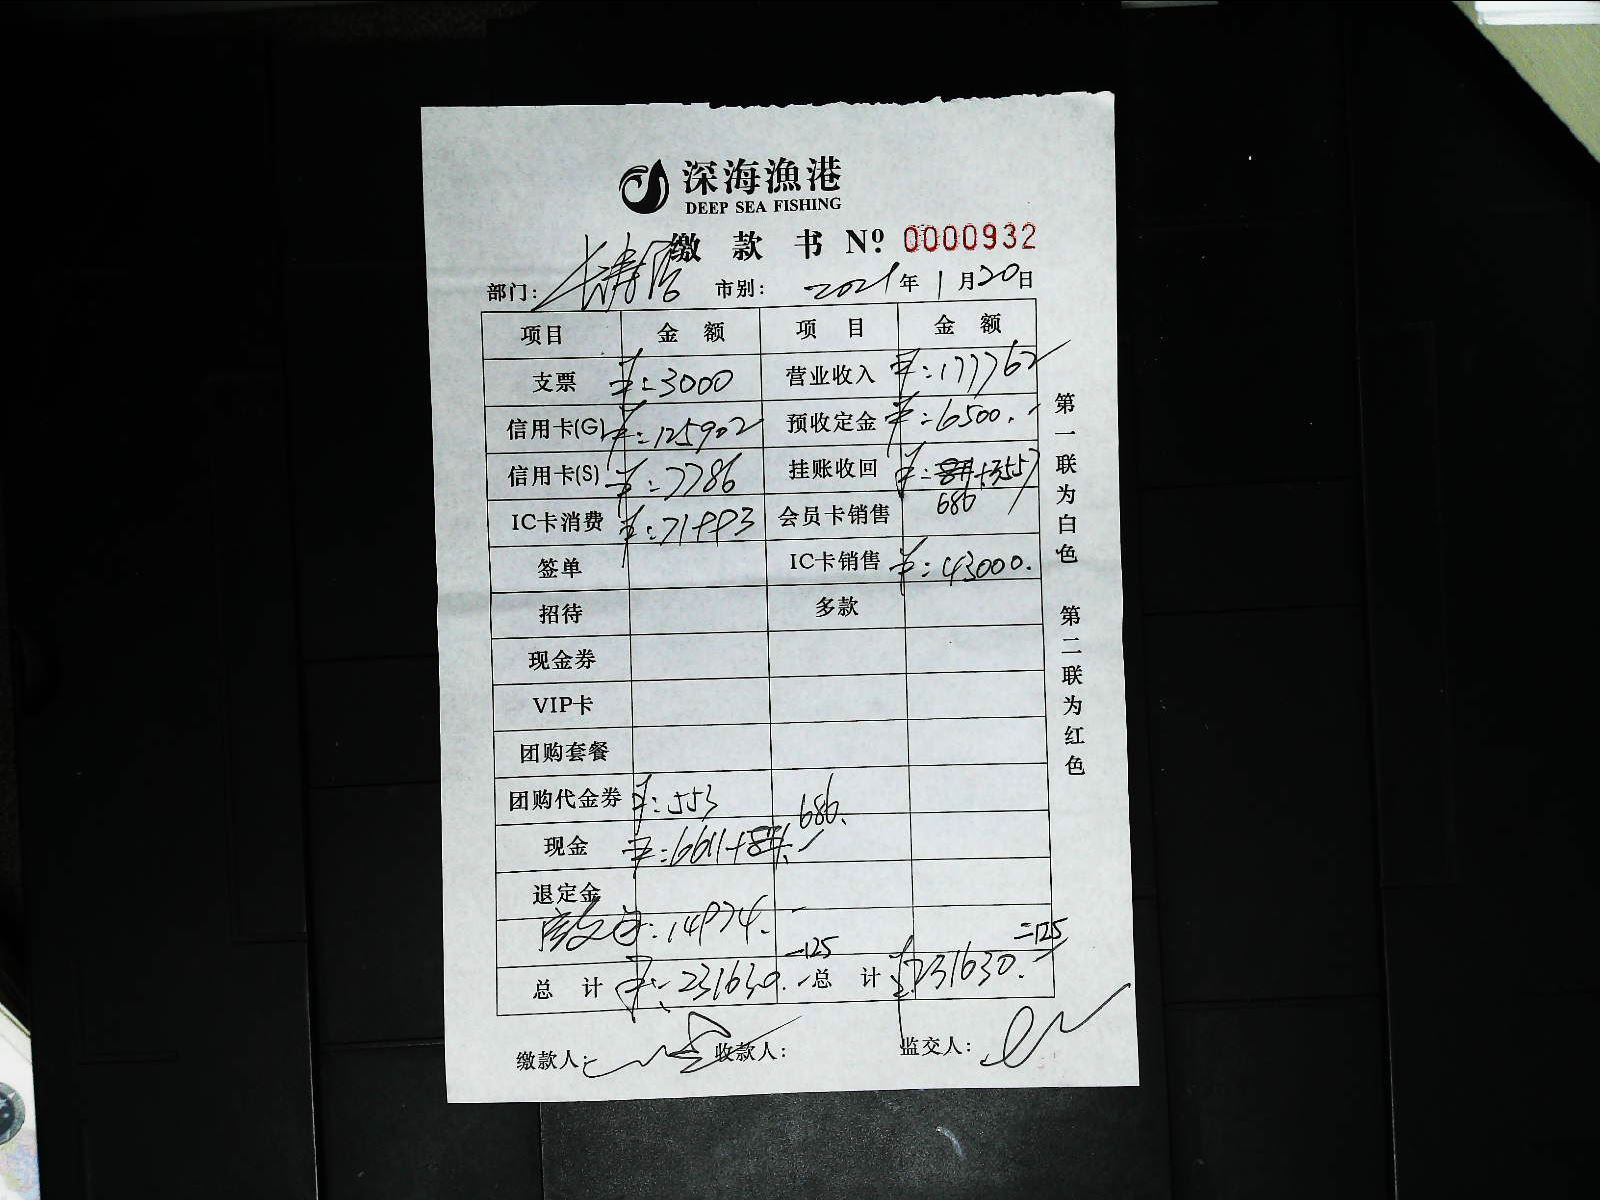 深海漁港
DEEP SEA FISHING
缴款书 Nº 0000932
部门： 市别： 2021年1月20日
项目 金额 项目 金额
支票 ¥:3000 营业收入 ¥:177762
信用卡(G) ¥:125902 预收定金 ¥:6500.-
信用卡(S) ¥:7786 挂账收回 ¥:811+3557
686
IC卡消费 ¥:71993 会员卡销售
签单 IC卡销售 ¥:43000.
招待 多款
现金券
VIP卡
团购套餐
团购代金券 ¥:553
686.
现金 ¥:6611+811.-
退定金
:14974.-
-125 =125
总计 ¥:231630.- 总计 ¥231630.
缴款人： 收款人： 监交人：
第一联为白色 第二联为红色